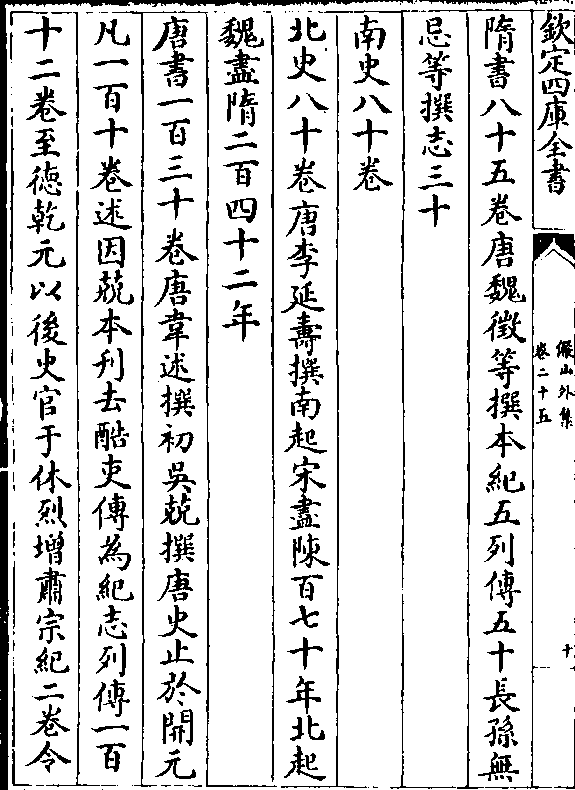 欽定四庫全書
儼山外集
卷二十五
十
隋書八十五卷唐魏徵等撰本紀五列傳五十長孫無
忌等撰志三十
南史八十卷
北史八十卷唐李延壽撰南起宋盡陳百七十年北起
魏盡隋二百四十二年
唐書一百三十卷唐韋述撰初吳兢撰唐史止於開元
凡一百十卷述因兢本刋去酷吏傳為紀志列傳一百
十二卷至德乾元以後史官于休烈增肅宗紀二卷令